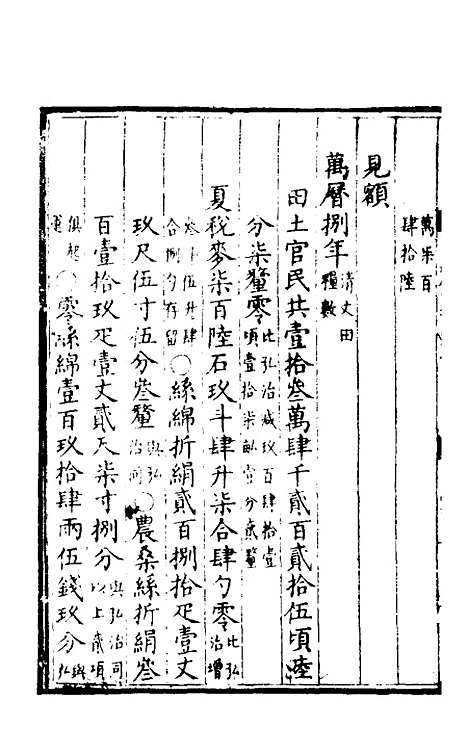 萬柒百
肆拾陸
見額
萬曆捌年清丈田糧數
田土官民共壹拾叁萬肆千貳百貳拾伍頃陸
分柒釐零比弘治減玖百肆拾壹頃壹拾柒畝壹分柒釐
夏稅麥柒百陸石玖斗肆升柒合肆勺零比弘治增
叁斗伍升肆合捌勺存留〇絲綿折絹貳百捌拾疋壹丈
玖尺伍寸伍分叁釐與弘治同〇農桑絲折絹叁
百壹拾玖疋壹丈貳尺柒寸捌分與弘治同以上貳項
俱起運〇零絲綿壹百玖拾肆兩伍錢玖分與弘